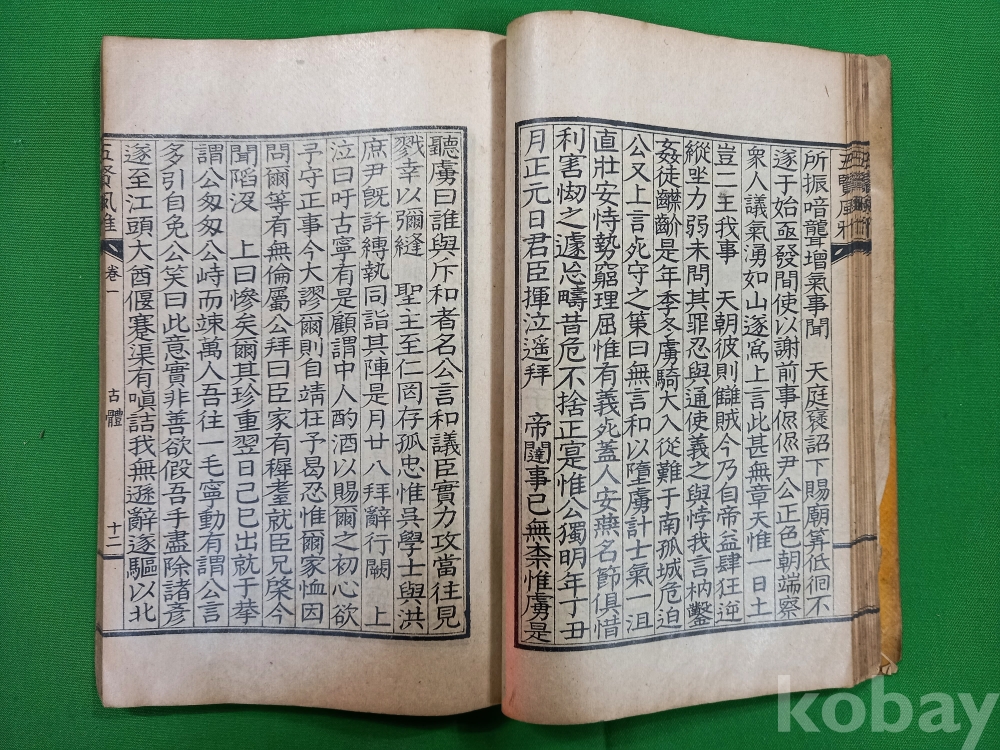 五賢風雅
所振喑聾增氣事聞　天庭褒詔下賜廟筭低徊不
遂于始亟發間使以謝前事侃侃尹公正色朝端察
衆人議氣湧如山遂爲上言此甚無章天惟一日土
豈二主我事　天朝彼則讎賊今乃自帝益肆狂逆
縱坐力弱未問其罪忍與通使義之與悖我言枘鑿
姦徒齮齕是年季冬虜騎大入從難于南孤城危迫
公又上言死守之策曰無言和以墮虜計士氣一沮
直壯安恃勢窮理屈惟有義死蓋人安無名節俱惜
利害怵之遽忘疇昔危不捨正寔惟公獨明年丁丑
月正元日君臣揮泣遥拜　帝闕事已無柰惟虜是
聽虜曰誰與斥和者名公言和議臣實力攻當往見
戮幸以彌縫　聖主至仁罔存孤忠惟吳學士與洪
庶尹旣許縛執同詣其陣是月廿八拜辭行闕　上
泣曰吁古寧有是顧謂中人酌酒以賜爾之初心欲
予守正事今大謬爾則自靖枉予曷忍惟爾家恤因
問爾等有無倫屬公拜曰臣家有穉耋就臣兄棨今
聞陷沒　上曰慘矣爾其珍重翌日己巳出就于拲
謂公匆匆公峙而竦萬人吾往一毛寧動有謂公言
多引自免公笑曰此意實非善欲假吾手盡除諸彦
遂至江頭大酋偃蹇渠有嗔詰我無遜辭遂驅以北
五賢風雅　卷一　古體　十二
kobay